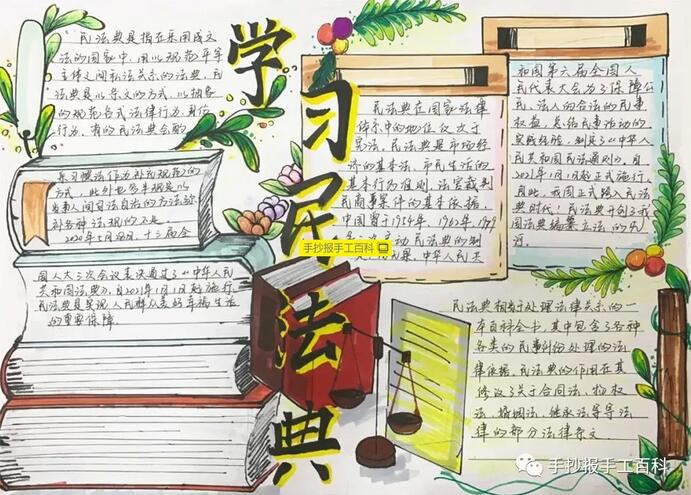 学习民法典
民法典是指在采用成文
法的国家中,用以规范平等
主体之间私法关系的法典,民
法典是以条文的方式,以抽象
的规则来规范各式法律行为,身份
行为,有的民法典会酌
采习惯法作为补充规范之的
方式,此外也多半规定以
当事人间习法自治的方法弥
补各种法规的不足
2020年5月28日,十三届全
国人大三次会议表决通过了《中华人民
共和国民法典》,自2021年1月1日起施行
民法典是实现人民群众美好幸福生活
的重要保障。
民法典在国家法律
体系中的地位仅次于
宪法,民法典是市场经
济的基本法,市民生活的
基本行为准则,法官裁判
民商事案件的基本依据,
中国曾于1954年,1962年,1979
主动民法典的制
中华人民共
和国第六届全国人
民代表大会为了保障公
民、法人的合法的民事
权益,总结民事活动的
实践经验,制定了《中华人
民共和国民法通则》,自
2021年1月1日起正式施行,
自此,我国正式踏入民法
典时代!民法典开创了我
国法典编纂立法的先
河,
民法典相当于处理法律关系的一
本百科全书,其中包含了各种
各类的民事纠纷处理的法
律依据,民法典的作用在其
修改了关于合同法,物权
法,婚姻法,继承法等等法
律的部分法律条文
手抄报手工百科
手抄报手工百科